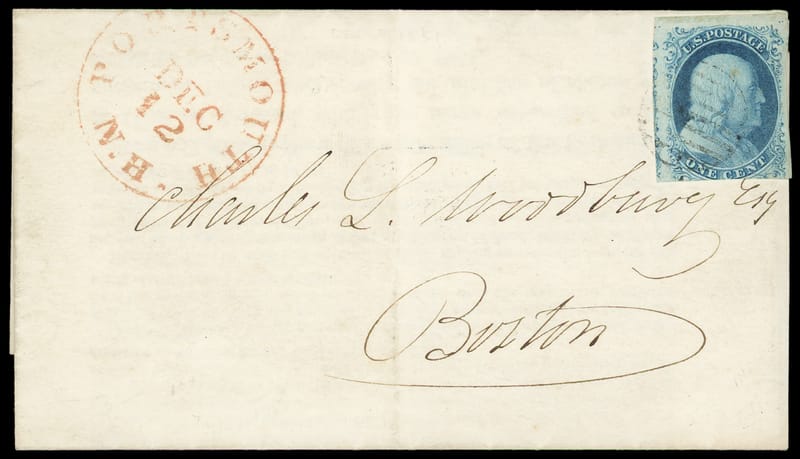 PORTSMOUTH
N.H.
DEC
12
U.S. POSTAGE
ONE CENT
Charles L. Woodbury Esq
Boston